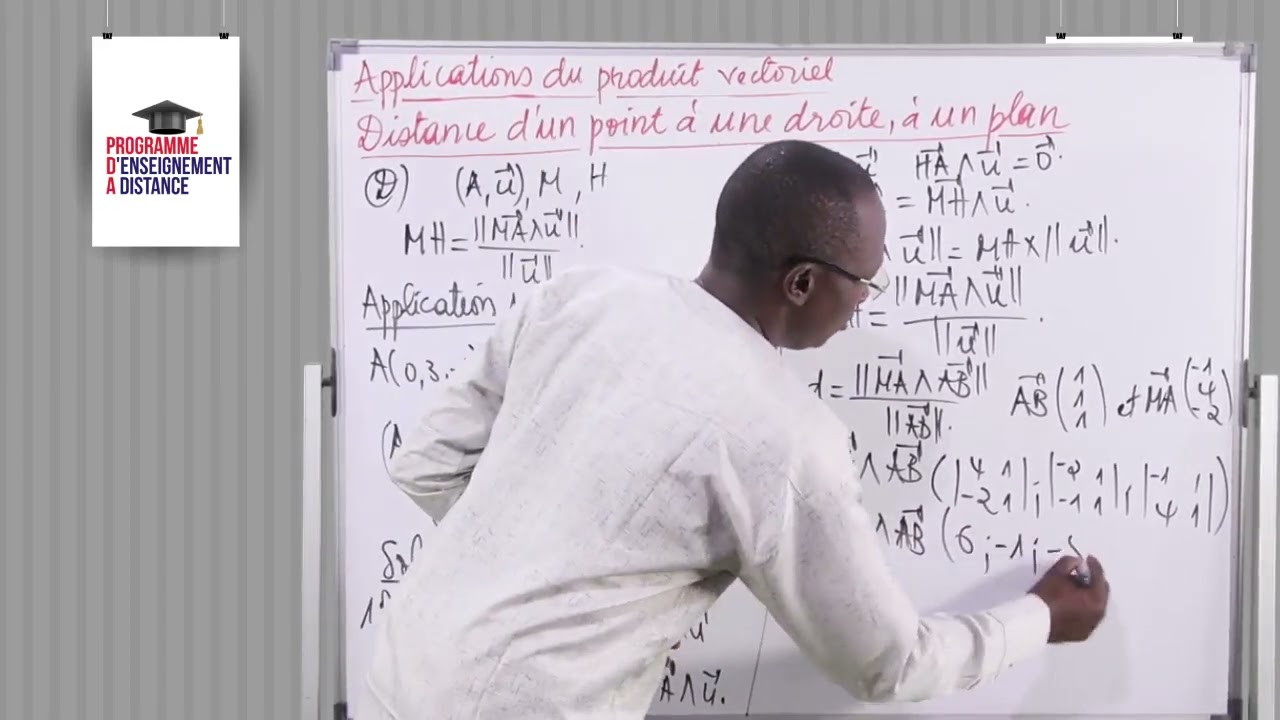 PROGRAMME
D'ENSEIGNEMENT
A DISTANCE
Applications du produit vectoriel
Distance d'un point à une droite, à un plan
2) (A, u⃗), M, H
MH = ||MA⃗ ∧ u⃗|| / ||u⃗||
Application
A(0,3,
HA⃗ ∧ u⃗ = 0⃗.
= MH⃗ ∧ u⃗.
u⃗|| = MH × ||u⃗||.
= ||MA⃗ ∧ u⃗|| / ||u⃗||.
d = ||MA⃗ ∧ AB⃗|| / ||AB⃗||. AB⃗ (1 1 1) et MA⃗ (-1 4 -2)
∧ AB⃗ (|4 1 -2 1| ; |-2 1 -1 1| ; |-1 1 4 1|)
∧ AB⃗ (6 ; -1 ; -5
∧ u⃗.